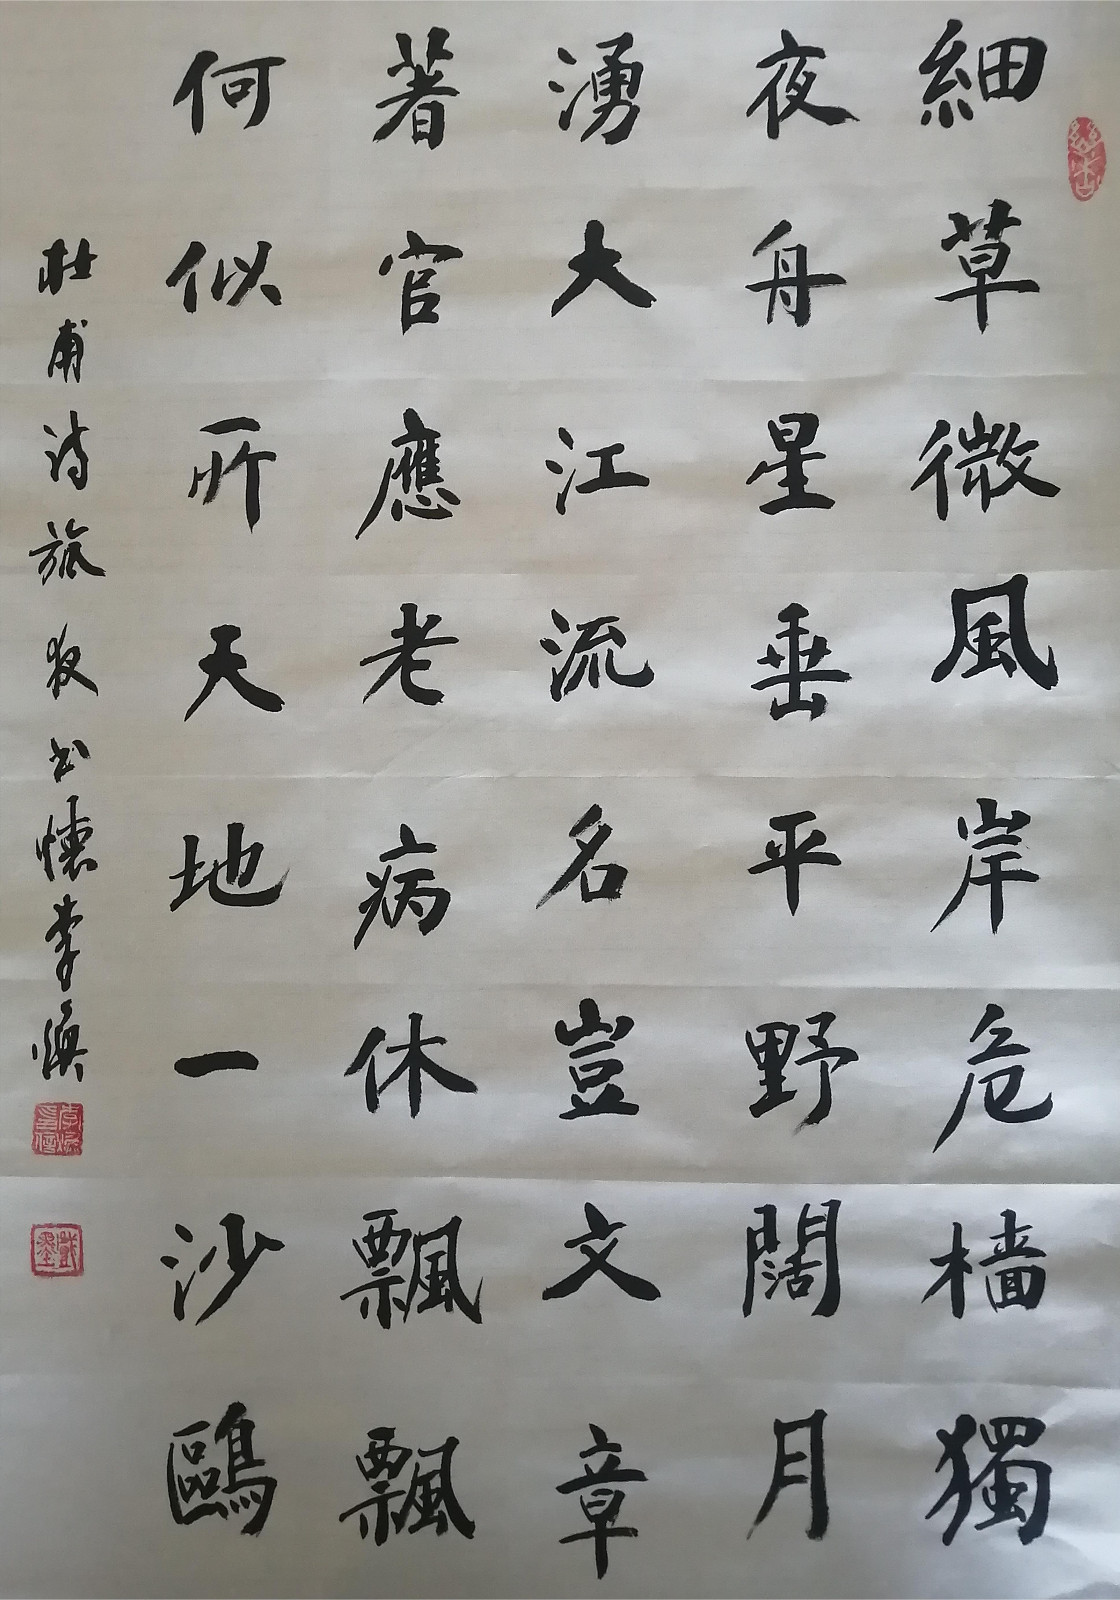 細草微風岸危檣獨
夜舟星垂平野闊月
湧大江流名豈文章
著官應老病休飄飄
何似所天地一沙鷗
杜甫诗旅夜书懷李煥
李煥印信
戲墨